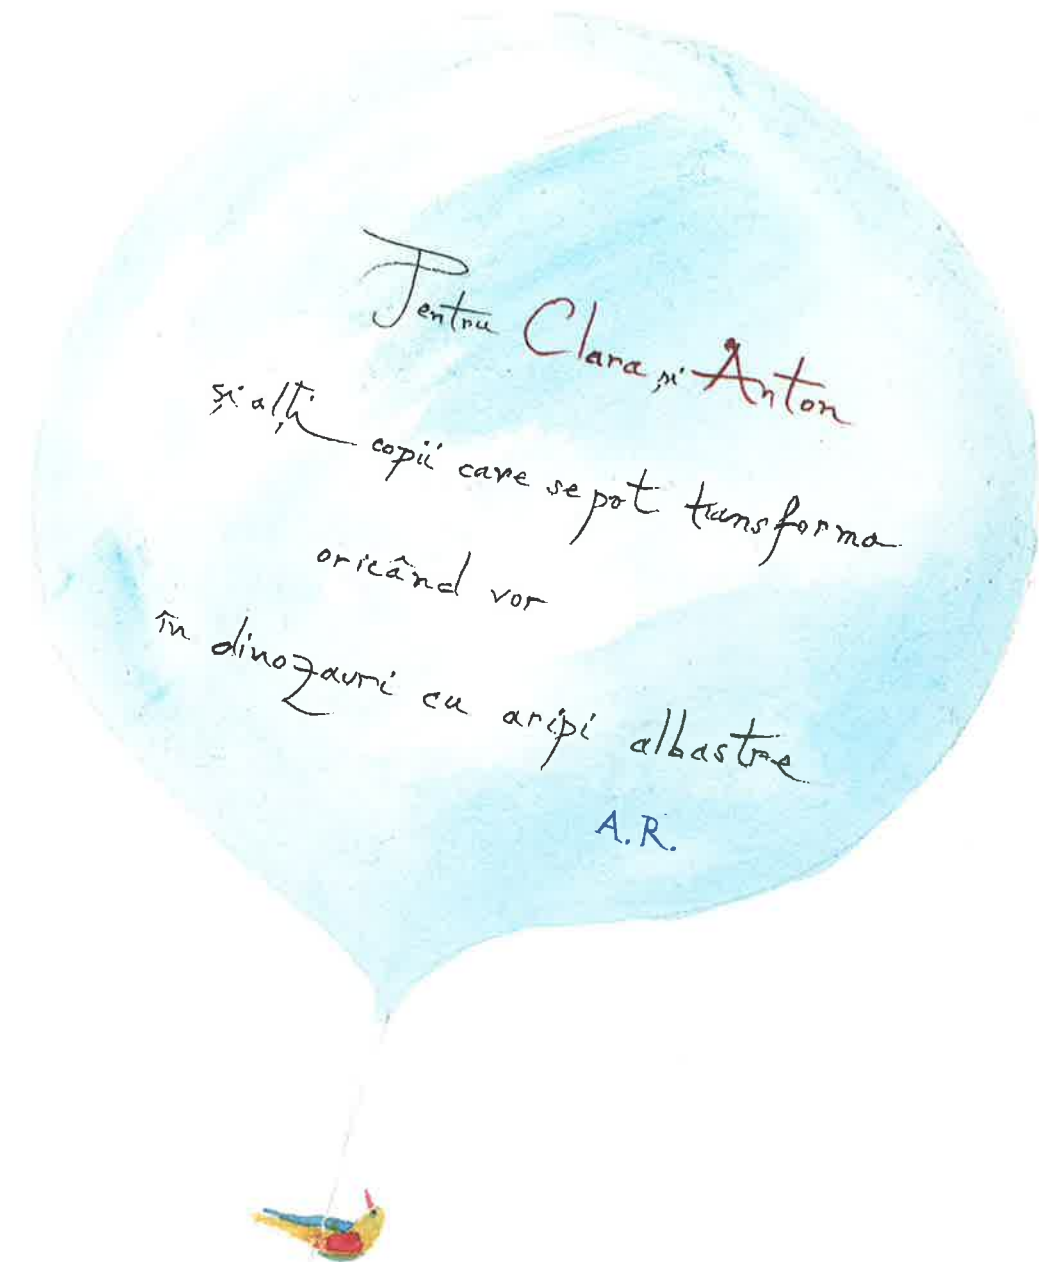 Pentru Clara și Anton
și alți copii care se pot transforma
oricând vor
în dinozauri cu aripi albastre
A.R.